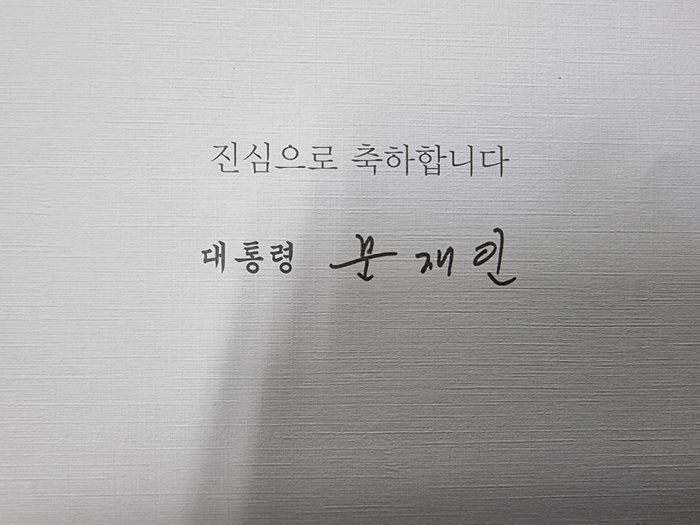 진심으로 축하합니다
대통령 문재인